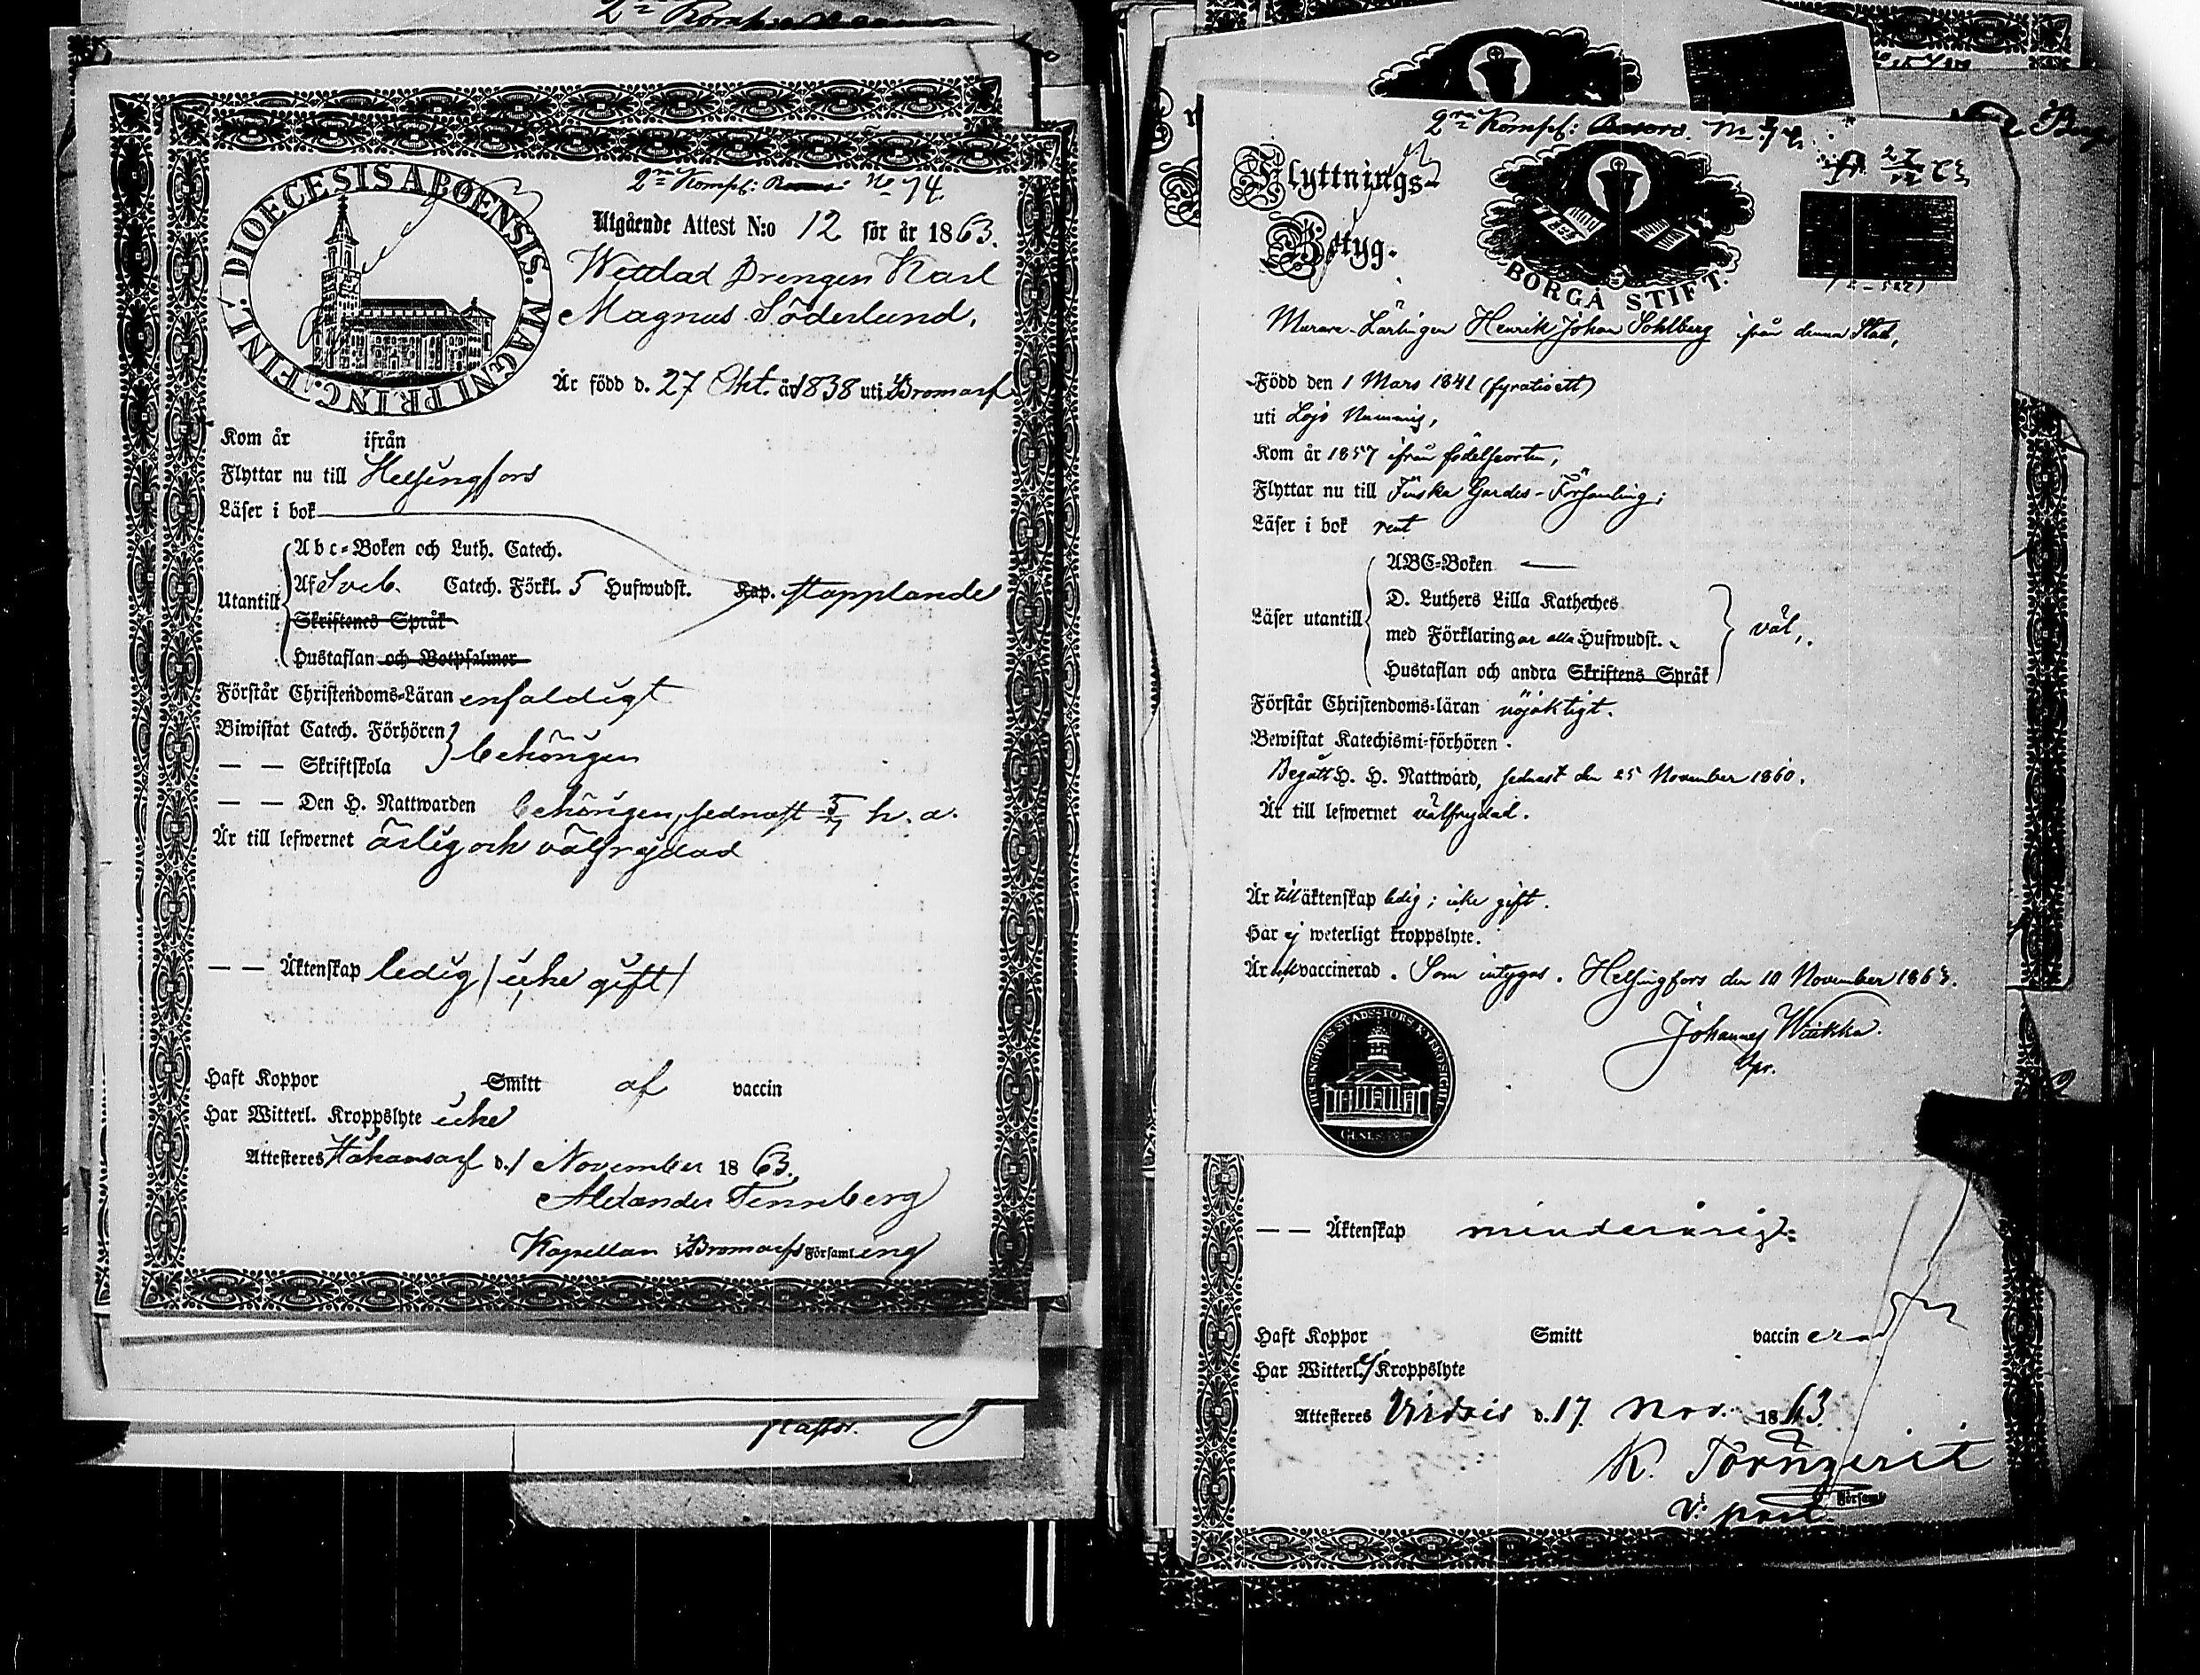 2:ra Komp:
DIOECESIS ABOENSIS. MAGNI PRINC. FINL.
2:ra Komp: No 74.
Utgående Attest N:o 12 för år 1863.
Drengen Karl
Magnus Söderlund,
Är född d. 27 Okt. år 1838 uti Bromarf
Kom år ifrån
Flyttar nu till Helsingfors
Läser i bok
Abc-Boken och Luth. Catech.
Utantill Af Sveb. Catech. Förkl. 5 Hufwudst. Kap. stapplande
Skriftenes Språk
Hustaflan och Botpsalmer
Förstår Christendoms-Läran enfaldigt
Biwistat Catech. Förhören
behörigen
— — Skriftskola
— — Den H. Nattwarden behörigen, sednast 5/7 h. a.
Är till lefwernet ärlig och välfrejdad
— — Äktenskap ledig / icke gift /
Haft Koppor Smitt af vaccin
Har Witterl. Kroppslyte icke
Attesteras Håkansarf d. 1 November 1863.
Alexander Tenneberg
Kapellan i Bromarfs Församling
Pastor.
2:ra Komp:
Flyttnings-
Betyg.
BORGÅ STIFT.
27/12 63
Murare-Lärlingen Henrik Johan Sohlberg ifrån denna Stad,
Född den 1 Mars 1841 (fyratioett)
uti Lojo Nummis,
Kom år 1857 ifrån födelseorten,
Flyttar nu till Finska Gardes-Församling;
Läser i bok rent
ABC-Boken —
D. Luthers Lilla Katheches
Läser utantill med Förklaring af alla Hufwudst. väl,
Hustaflan och andra Skriftens Språk
Förstår Christendoms-läran nöjaktigt.
Bewistat Katechismi-förhören.
Begått H. H. Nattward, sednast den 25 November 1860.
Är till lefwernet välfrejdad.
Är till äktenskap ledig; icke gift.
Har ej weterligt kroppslyte.
Är vaccinerad. Som intygas. Helsingfors den 10 November 1863.
Johannes Wiikka.
HELSINGFORS STADS
— — Äktenskap minderårig.
Haft Koppor Smitt vaccinerad
Har Witterl. ej Kroppslyte
Attesteras Virdois d. 17 Nov. 1863.
K. Törnqerit
v: past
Församl